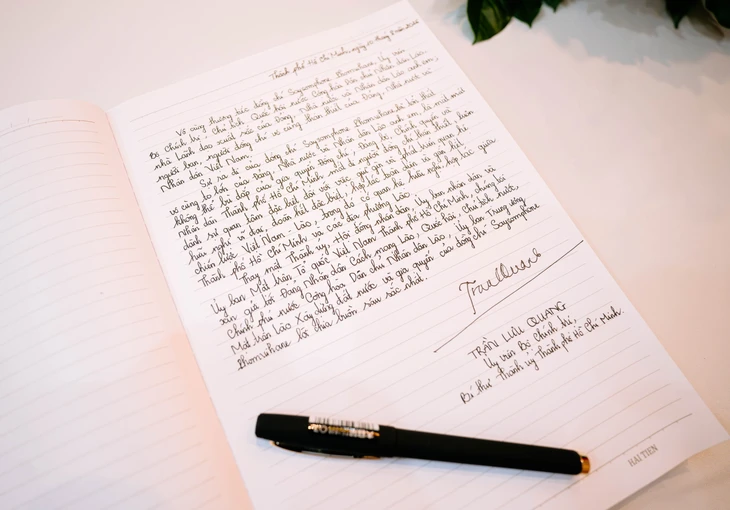 Thành phố Hồ Chí Minh, ngày
Vô cùng thương tiếc đồng chí Saysomphone Phomvihane, Ủy viên
Bộ Chính trị, Chủ tịch Quốc hội nước Cộng hòa Dân chủ Nhân dân Lào,
nhà lãnh đạo xuất sắc của Đảng, Nhà nước và Nhân dân Lào anh em,
người bạn, người đồng chí vô cùng thân thiết của Đảng, Nhà nước và
Nhân dân Việt Nam.
Sự ra đi của đồng chí Saysomphone Phomvihane là mất mát
vô cùng to lớn của Đảng, Nhà nước và Nhân dân Lào anh em, là
không thể bù đắp của gia quyến đồng chí. Đảng bộ, Chính quyền và
Nhân dân Thành phố Hồ Chí Minh mất đi người đồng chí thân thiết, luôn
dành sự quan tâm đặc biệt đối với việc gìn giữ và phát triển quan hệ
hữu nghị vĩ đại, đoàn kết đặc biệt, hợp tác toàn diện và gắn kết
chiến lược Việt Nam - Lào, trong đó có quan hệ hữu nghị hợp tác giữa
Thành phố Hồ Chí Minh và các địa phương Lào.
Thay mặt Thành ủy, Hội đồng nhân dân, Ủy ban nhân dân và
Ủy ban Mặt trận Tổ quốc Việt Nam Thành phố Hồ Chí Minh, chúng tôi
xin gửi tới Đảng Nhân dân Cách mạng Lào, Quốc hội, Chủ tịch nước,
Chính phủ nước Cộng hòa Dân chủ Nhân dân Lào, Ủy ban Trung ương
Mặt trận Lào Xây dựng đất nước và gia quyến của đồng chí Saysomphone
Phomvihane lời chia buồn sâu sắc nhất.
TRẦN LƯU QUANG
Ủy viên Bộ Chính trị,
Bí thư Thành ủy Thành phố Hồ Chí Minh.
HẢI TIẾN